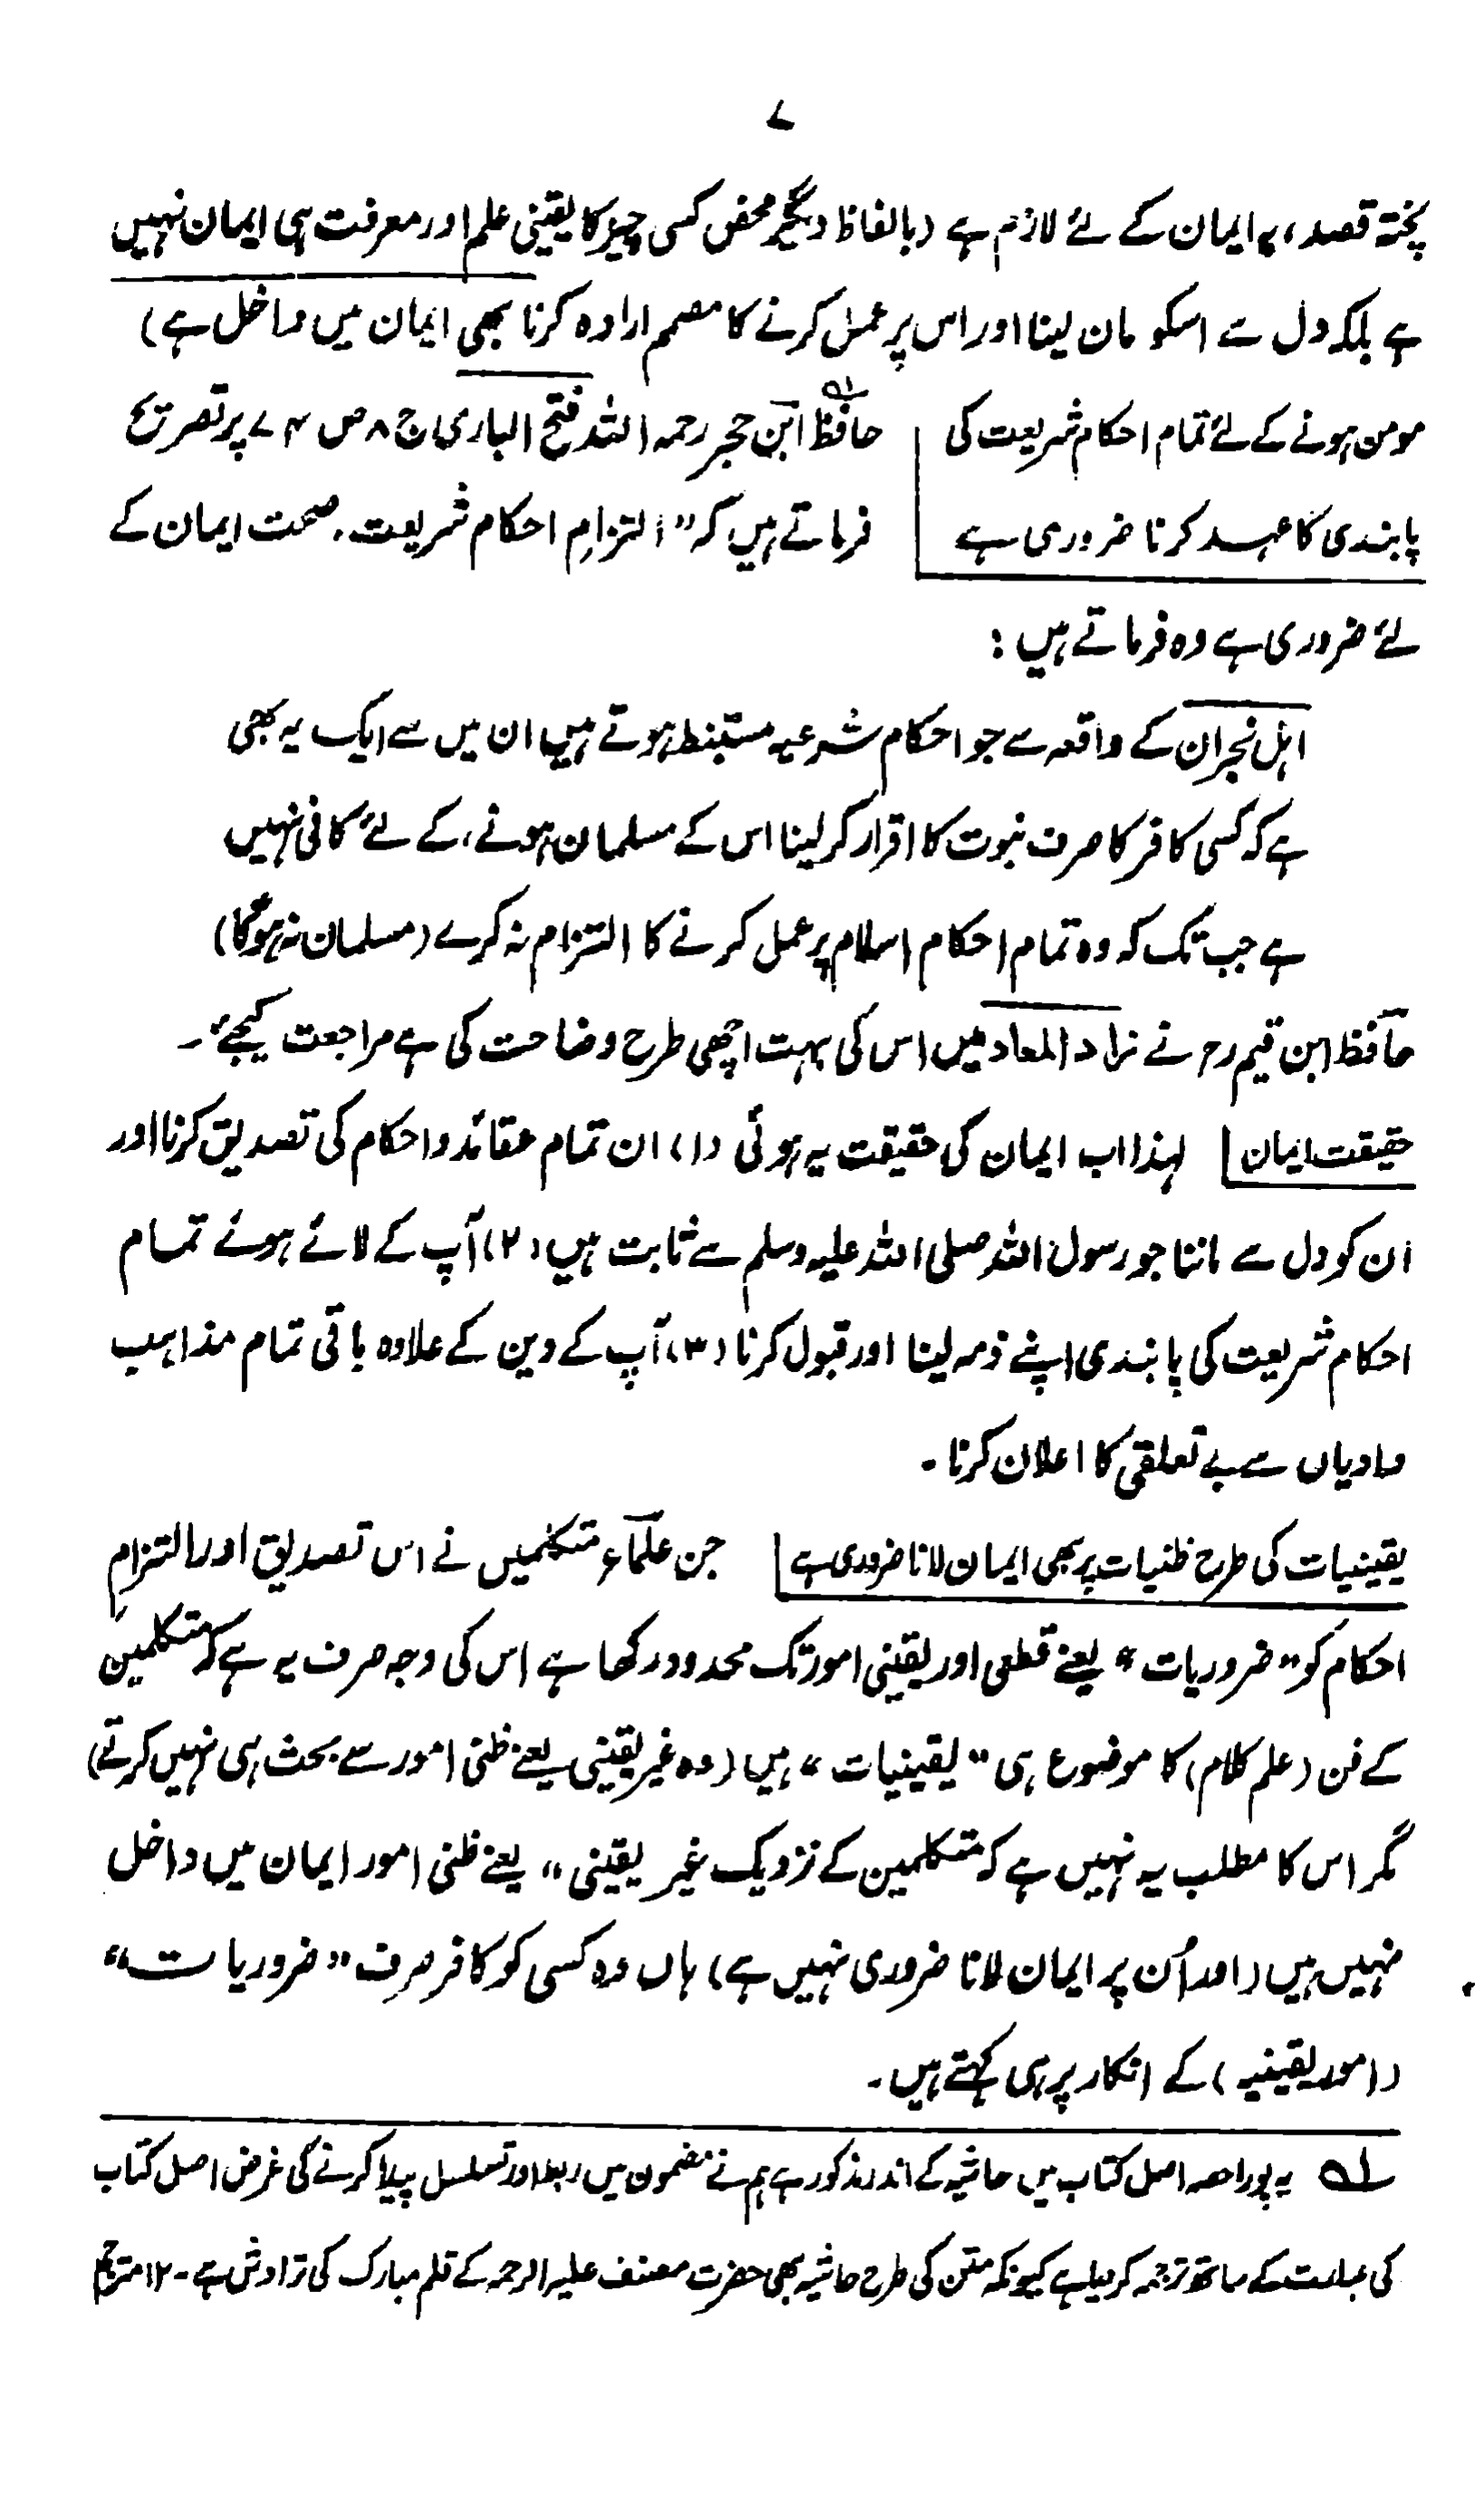 ۷
پختہ قصد،، ایمان کے لئے لازم ہے (بالفاظ دیگر محض کسی چیز کا یقینی علم اور معرفت ہی ایمان نہیں
ہے بلکہ دل سے اسکو مان لینا اور اس پر عمل کرنے کا مصمم ارادہ کرنا بھی ایمان میں داخل ہے)
مومن ہونے کے لئے تمام احکام شریعت کی
پابندی کا عہد کرنا ضروری ہے
حافظ ابن حجر رحمہ اللہ فتح الباری ج ۸ ص ۷۴ پر تصریح
فرماتے ہیں کہ "التزامِ احکام شریعت، صحت ایمان کے
لئے ضروری ہے وہ فرماتے ہیں:
اہل نجران کے واقعہ سے جو احکام شرعیہ مستنبط ہوتے ہیں ان میں سے ایک یہ بھی
ہے کہ کسی کافر کا صرف نبوت کا اقرار کر لینا اس کے مسلمان ہونے، کے لئے کافی نہیں
ہے جب تک کہ وہ تمام احکام اسلام پر عمل کرنے کا التزام نہ کرے (مسلمان نہ ہوگا)
حافظ ابن قیم رح نے زاد المعاد میں اس کی بہت اچھی طرح وضاحت کی ہے مراجعت کیجئے۔
حقیقت ایمان لہذا اب ایمان کی حقیقت یہ ہوئی (۱) ان تمام عقائد و احکام کی تصدیق کرنا اور
ان کو دل سے ماننا جو رسول اللہ صلی اللہ علیہ وسلم سے ثابت ہیں (۲) آپ کے لائے ہوئے تمام
احکام شریعت کی پابندی اپنے ذمہ لینا اور قبول کرنا (۳) آپ کے دین کے علاوہ باقی تمام مذاہب
وادیان سے بے تعلقی کا اعلان کرنا۔
یقینیات کی طرح ظنیات پر بھی ایمان لانا ضروری ہے جن علماء متکلمین نے اس تصدیق اور التزامِ
احکام کو "ضروریات" یعنے قطعی اور یقینی امور تک محدود رکھا ہے اس کی وجہ صرف یہ ہے کہ متکلمین
کے فن (علم کلام) کا موضوع ہی "یقینیات" ہیں (وہ غیر یقینی یعنے ظنی امور سے بحث ہی نہیں کرتے)
مگر اس کا مطلب یہ نہیں ہے کہ متکلمین کے نزدیک غیر یقینی" یعنے ظنی امور ایمان میں داخل
نہیں ہیں (اور اُن پر ایمان لانا ضروری نہیں ہے) ہاں وہ کسی کو کافر صرف "ضروریات"
(امور یقینیہ) کے انکار پر ہی کہتے ہیں۔
لہ یہ پورا حصہ اصل کتاب میں حاشیہ کے اندر مذکور ہے ہم نے مضمون میں ربط اور تسلسل پیدا کرنے کی غرض اصل کتاب
کی عبارت کے ساتھ ترجمہ کر دیا ہے کیونکہ متن کی طرح حاشیہ بھی حضرت مصنف علیہ الرحمہ کے قلم مبارک کی تراوش ہے۔ ۱۲ مترجم